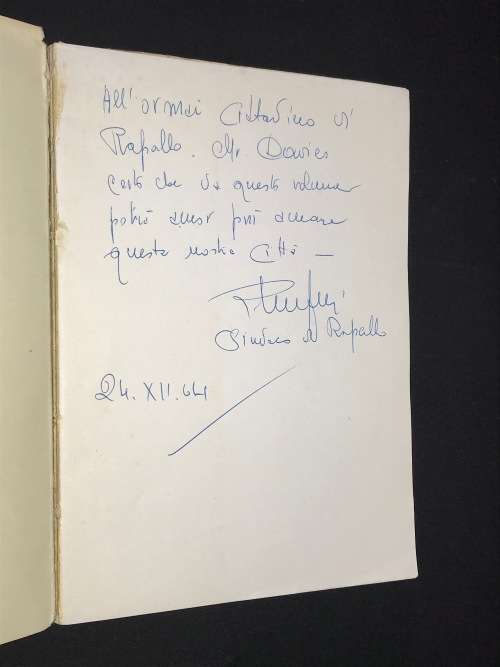 All'ormai Cittadino di
Rapallo. Mr Davies
certo che da questo volume
potrà ancor più amare
questa nostra Città —
Sindaco di Rapallo
24. XII. 64